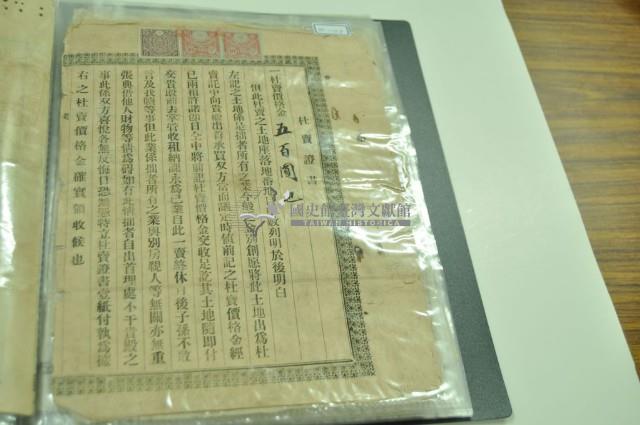 杜賣證書
一杜賣價格金 五百圓也
但此杜賣之土地座落地番地目 列明於後明白
左記之土地係是拙者所有之業今 別創愿將此土地出為杜
賣託中向貴殿出首承買双方當面議定時値前記之杜賣價格金經
已兩相許諾卽日仝中將前記杜賣價格金交收足訖其土地隨卽付
交貴殿前去掌管收租納課永為己業自此一賣終休日後子孫不敢
言及找贖等事但此業係拙者所有之業與別房親人等無關亦無重
張典借他人財物等情為碍如有此情拙者自出首理處不干貴殿之
事此係双方喜悅各無反悔日恐無憑特立杜賣證書壹紙付執為據
右之杜賣價格金確實領收候也
國史館臺灣文獻館
TAIWAN HISTORICA